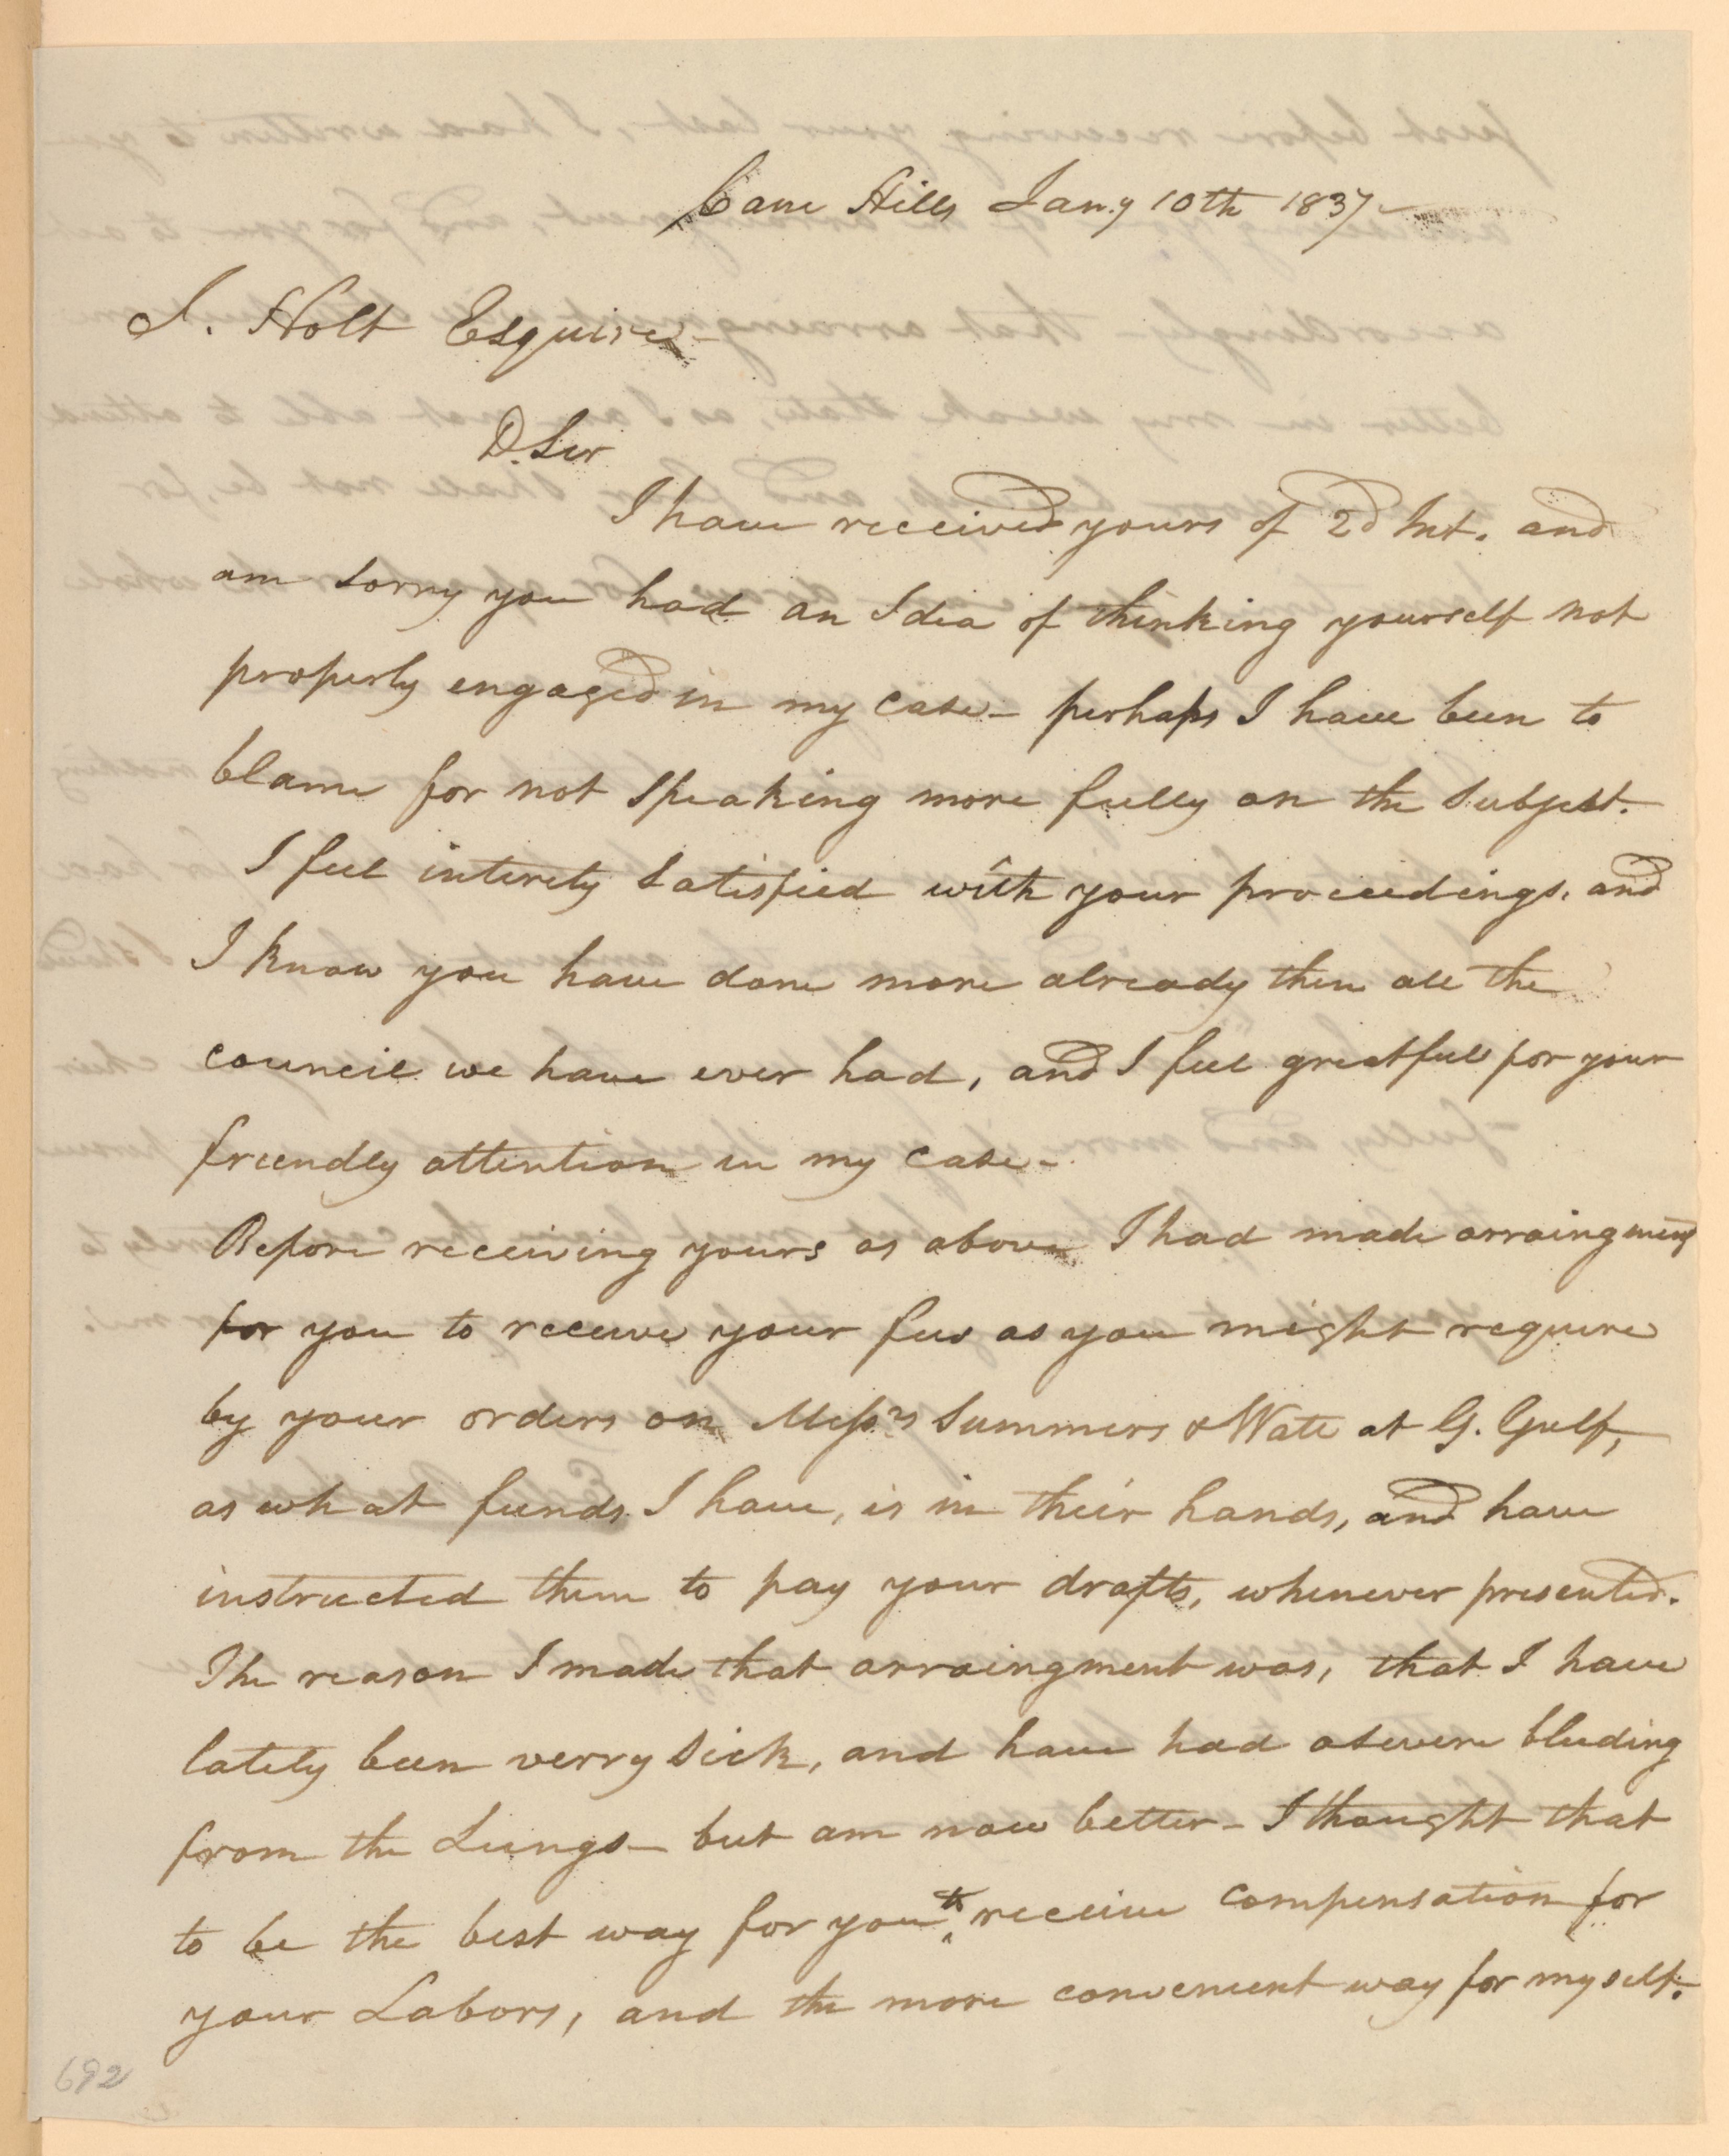 Cane Hills Jany 10th 1837-
J. Holt Esquire-
D. Sir
I have received yours of 2d Int. and
am sorry you had an Idia of thinking yourself not
properly engaged in my case- perhaps I have been to
blame for not speaking more fully on the subject.
I feel intirely satisfied with your proceedings, and
I know you have done more already then all the
council we have ever had, and I feel greatfull for your
friendly attention in my case-
Before receiving yours as above I had made arraingment
for you to receive your fees as you might require
by your orders on Messrs Summers & Wate at G. Gulf,
as what funds I have, is in their hands, and have
instructed them to pay your drafts, whenever presented.
The reason I made that arraingment was, that I have
lately been verry sick, and have had a severe bleeding
from the Lungs- but am now better- I thought that
to be the best way for you to receive compensation for
your Labors, and the more convenient way for myself.
692